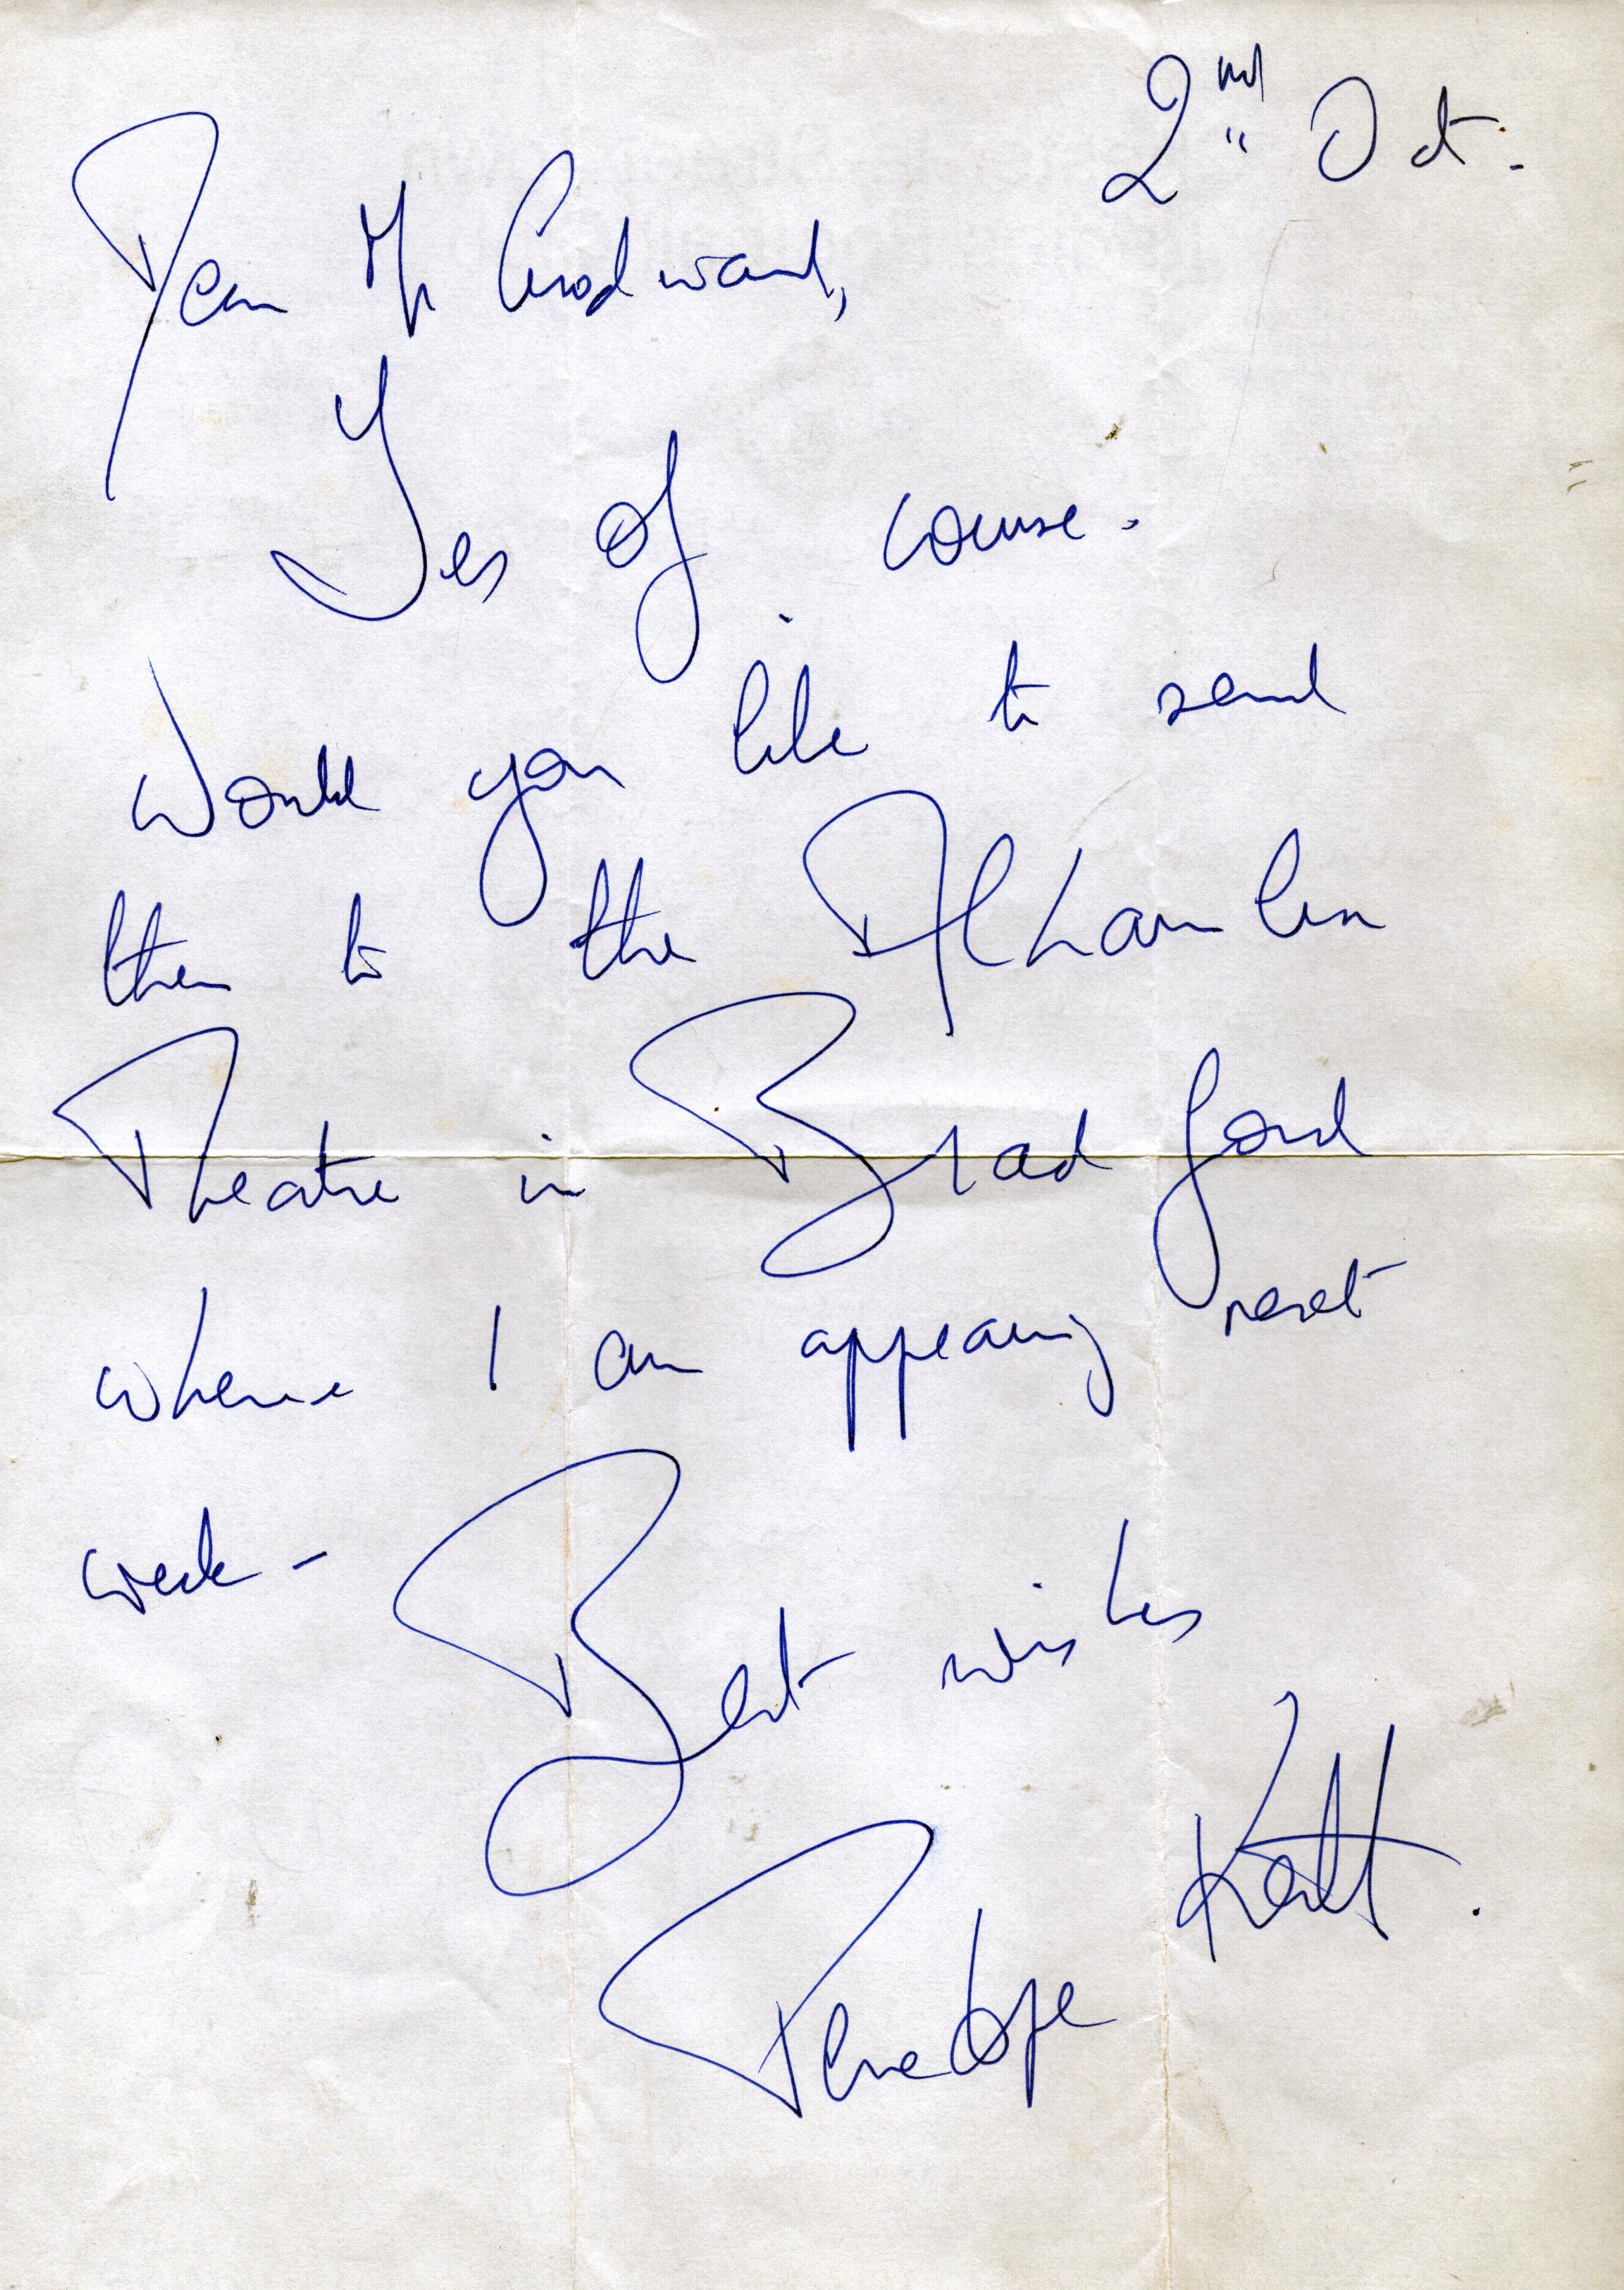 2nd Oct.
Dear Mr Goodward,
Yes of course.
Would you like to send
them to the Alhambra
Theatre in Bradford
where I am appearing next
week -
Best wishes
Penelope Keith.